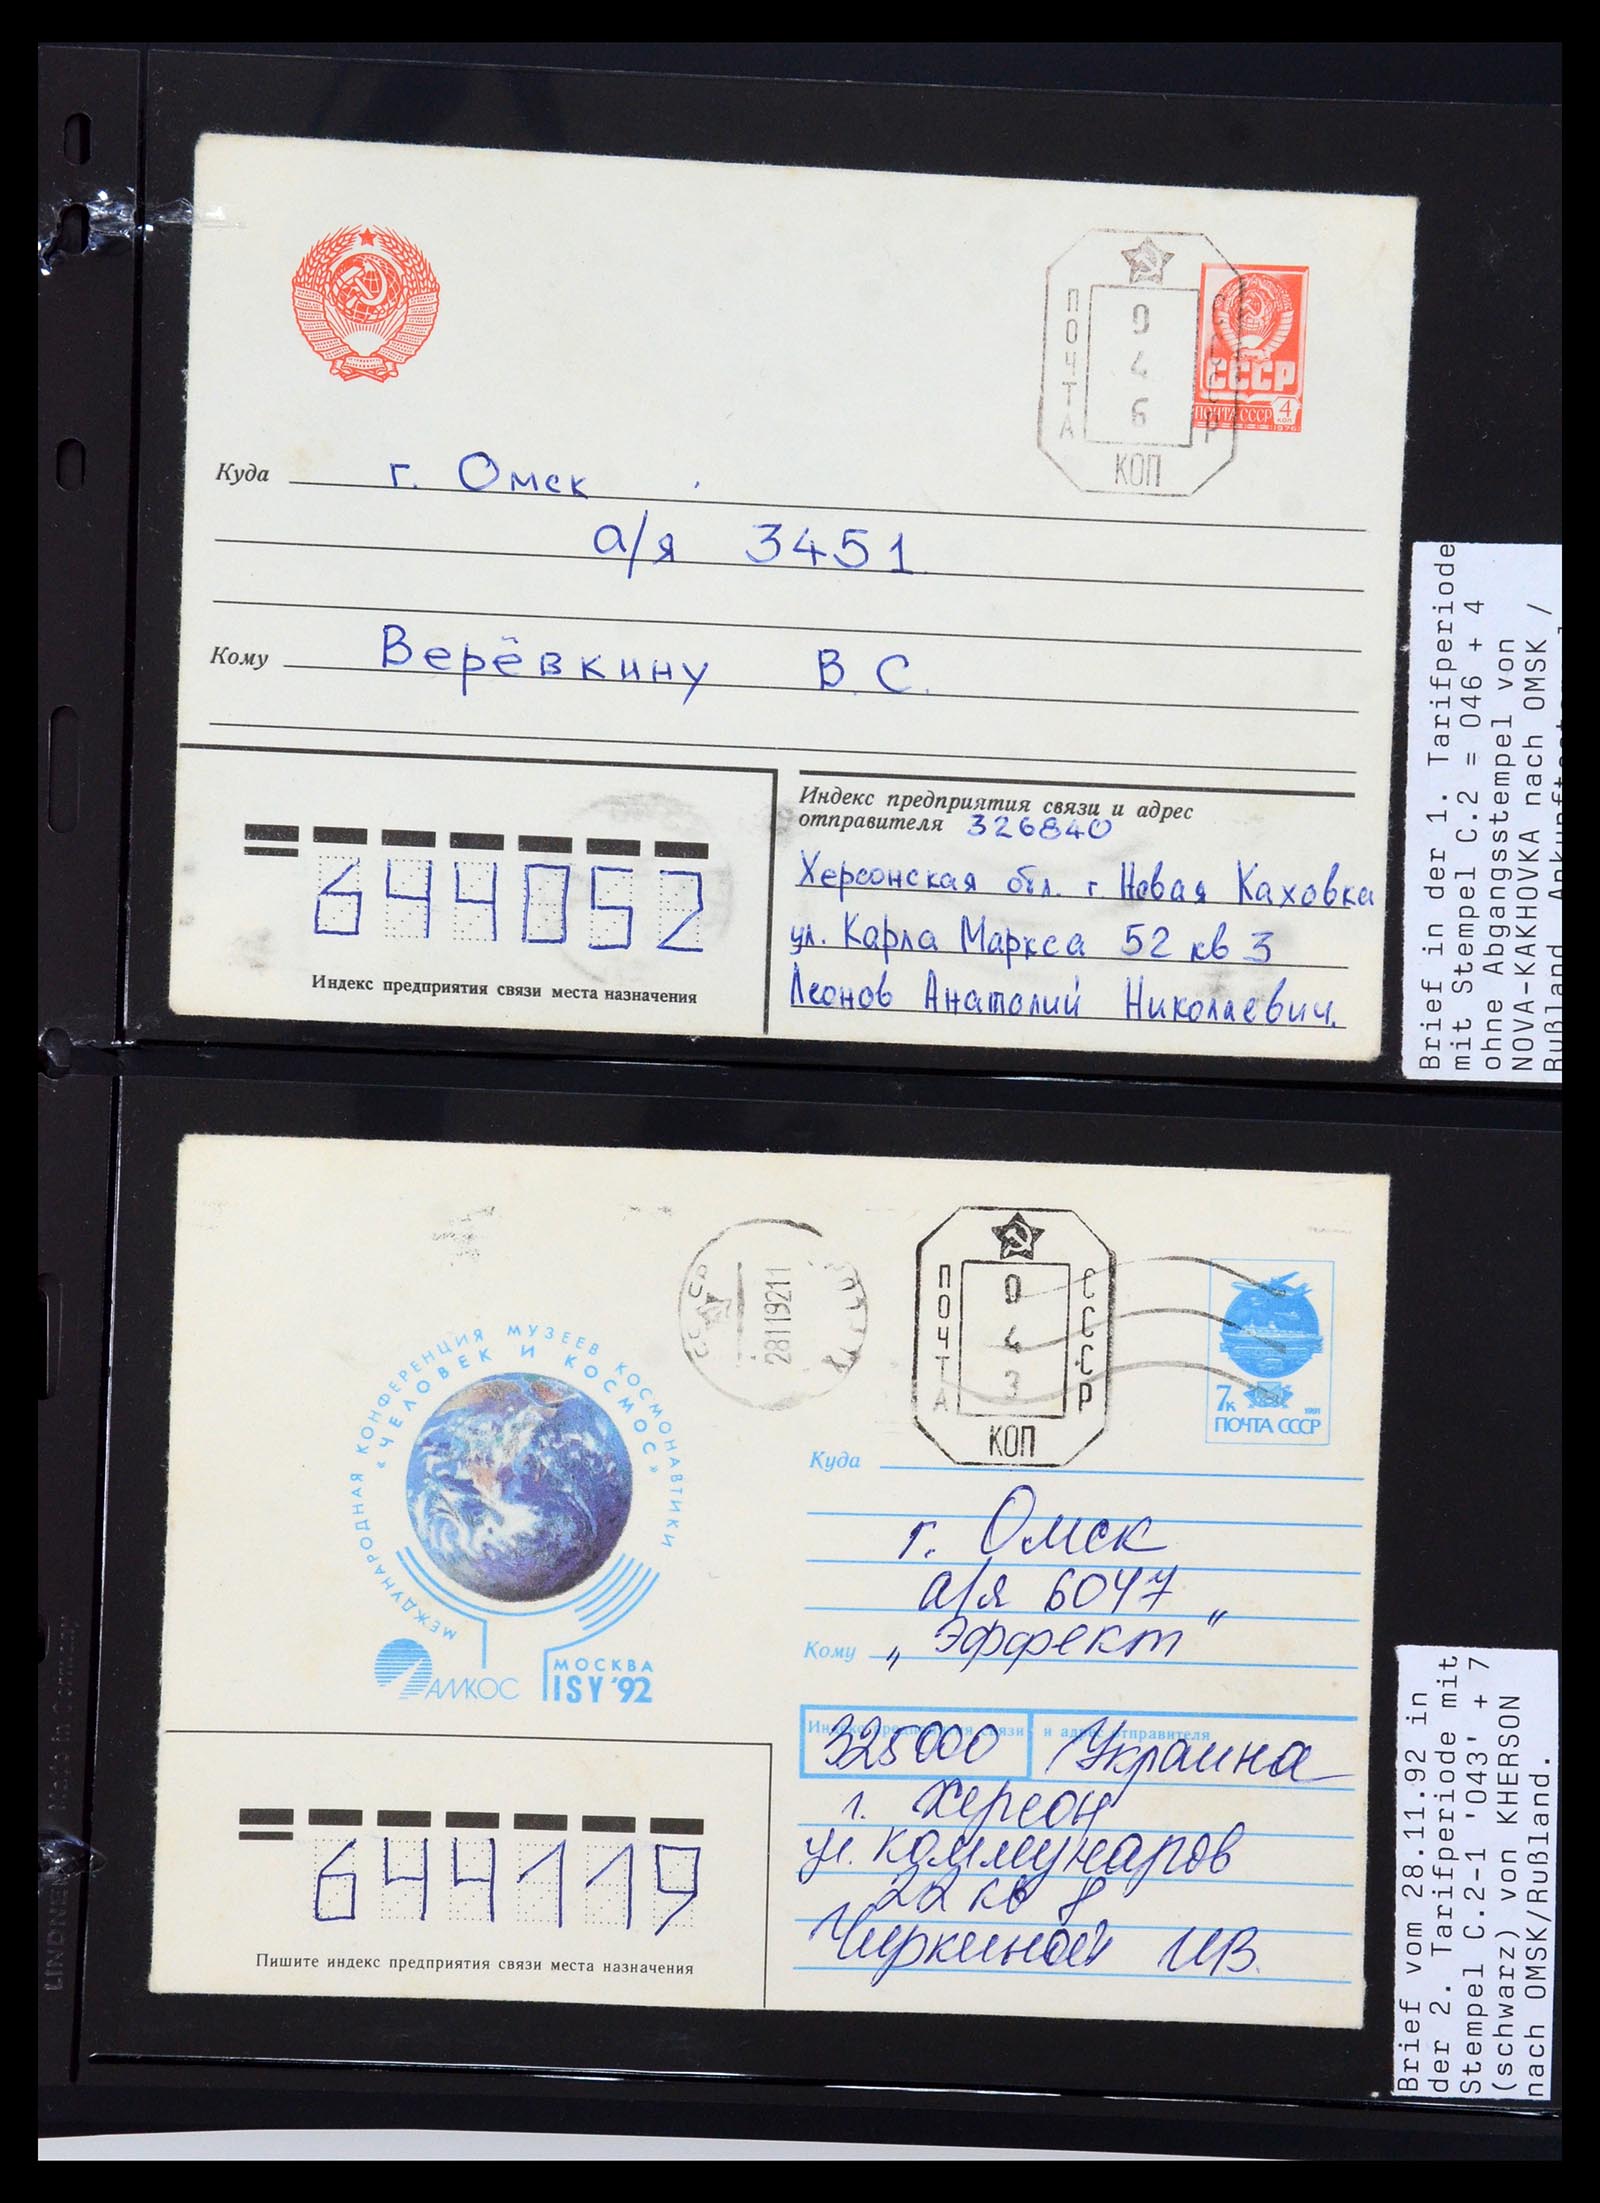 ПОЧТА
СССР
0
4
6
КОП
СССР
ПОЧТА СССР
4
КОП
1976
Куда г. Омск
а/я 3451
Кому Верёвкину В.С.
Индекс предприятия связи и адрес
отправителя 326840
Херсонская обл. г. Новая Каховка
ул. Карла Маркса 52 кв 3
Леонов Анатолий Николаевич.
644052
Индекс предприятия связи места назначения
Brief in der 1. Tarifperiode
mit Stempel C.2 = 046 + 4
ohne Abgangsstempel von
NOVA-KAKHOVKA nach OMSK /
Rußland
28119211
ПОЧТА
СССР
0
4
3
КОП
7к
1991
ПОЧТА СССР
МЕЖДУНАРОДНАЯ КОНФЕРЕНЦИЯ МУЗЕЕВ КОСМОНАВТИКИ
«ЧЕЛОВЕК И КОСМОС»
АМКОС
МОСКВА
ISY '92
Куда
г. Омск
а/я 6047
Кому „Эффект"
Индекс предприятия связи и адрес отправителя
325000 Украина
г. Херсон
ул. Коммунаров
22 кв 8
Чиркиной ИВ.
644119
Пишите индекс предприятия связи места назначения
Brief vom 28.11.92 in
der 2. Tarifperiode mit
Stempel C.2-1 '043' + 7
(schwarz) von KHERSON
nach OMSK/Rußland.